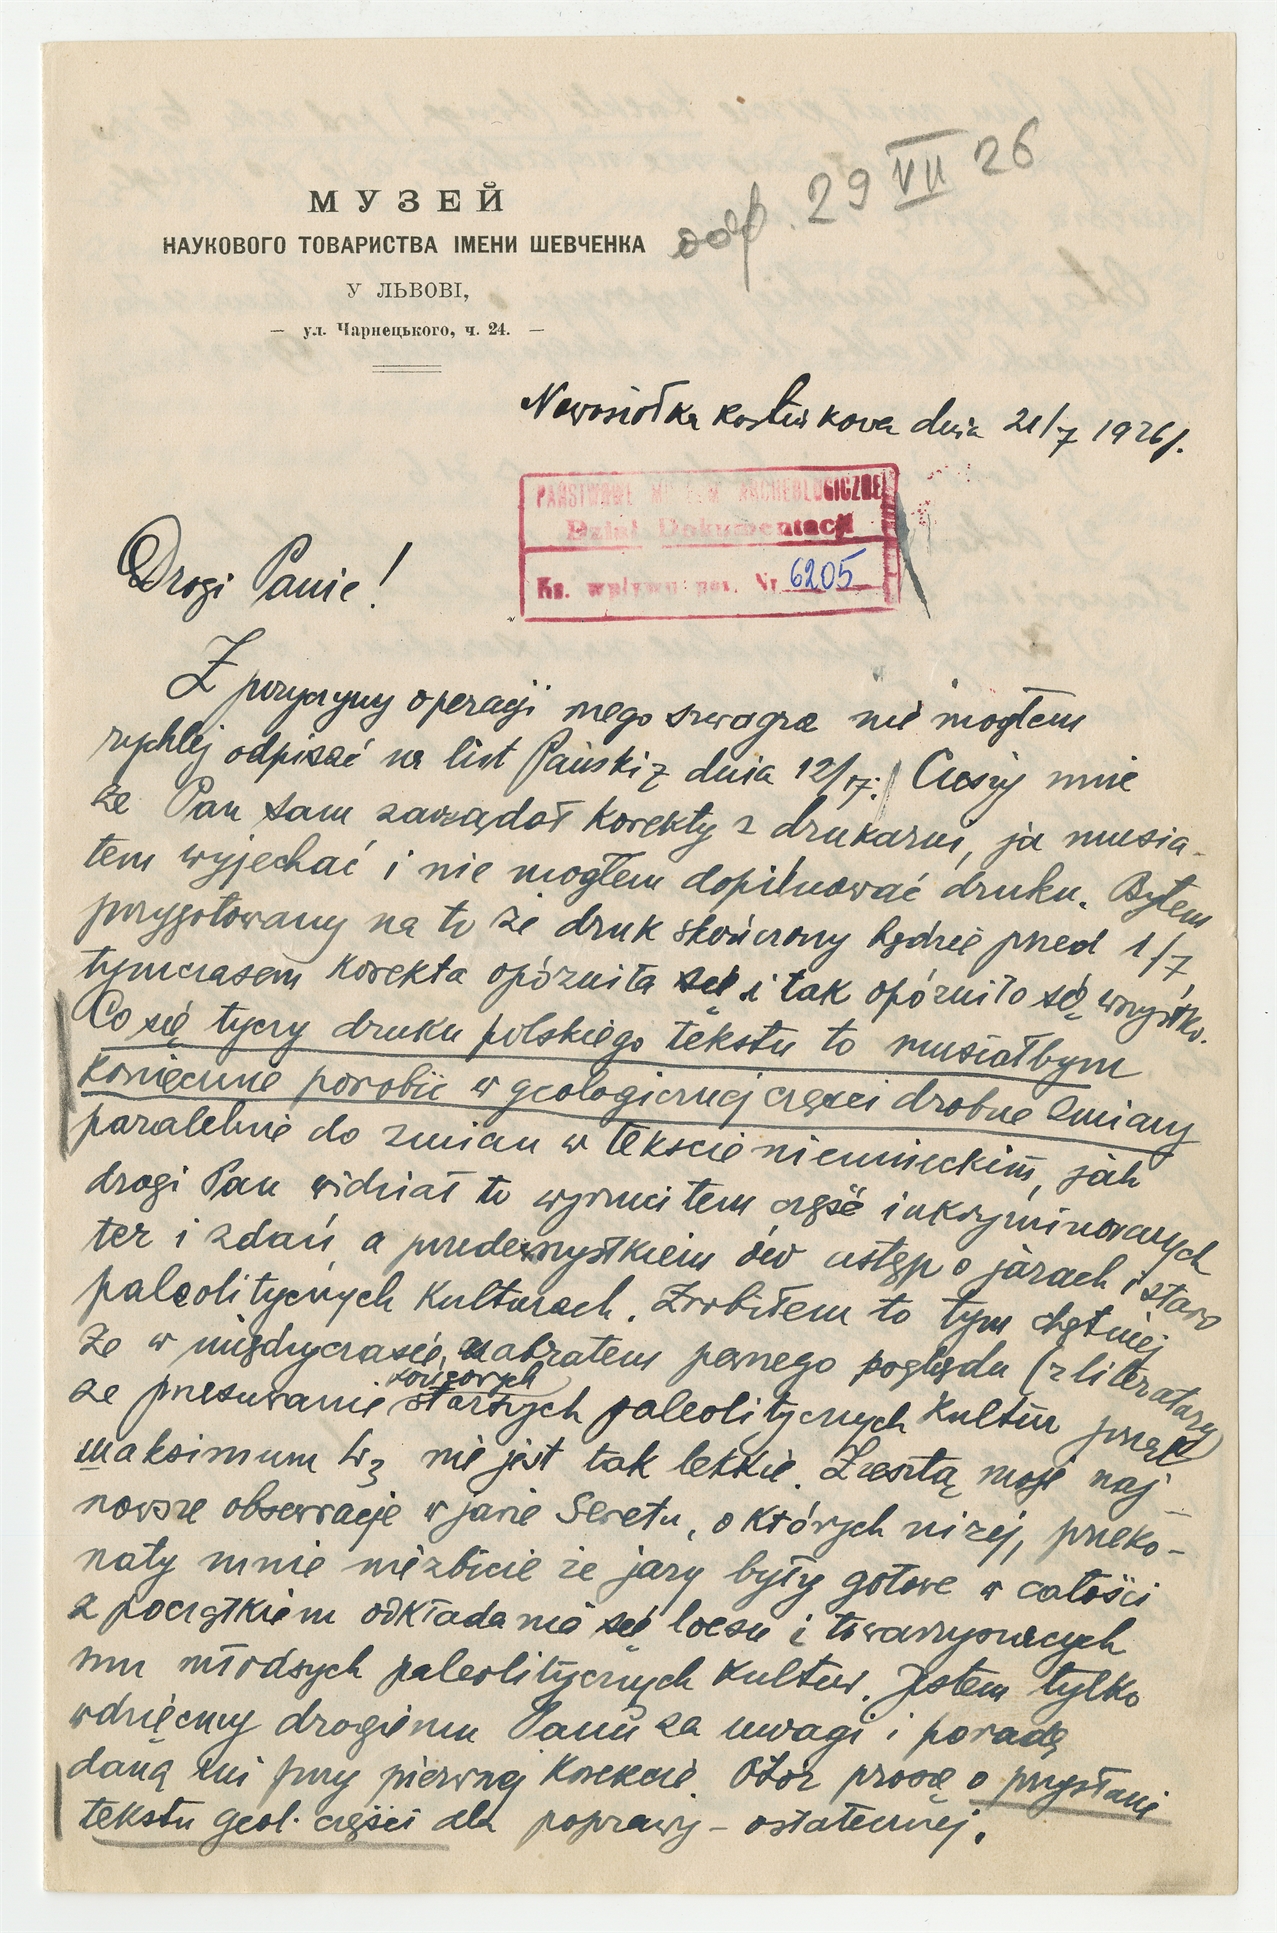 МУЗЕЙ
НАУКОВОГО ТОВАРИСТВА ІМЕНИ ШЕВЧЕНКА
У ЛЬВОВІ,
— ул. Чарнецького, ч. 24. —
odp. 29 VII 26
Nowosiołka kostiukowa dnia 21/7 1926 r.
PAŃSTWOWE MUZEUM ARCHEOLOGICZNE
Dział Dokumentacji
Ks. wpływu poz. Nr 6205
Drogi Panie!
Z przyczyny operacji mego szwagra nie mogłem
rychlej odpisać na list Pański z dnia 12/7. Cieszy mnie
że Pan sam zarządał korekty z drukarni, ja musia-
łem wyjechać i nie mogłem dopilnować druku. Byłem
przygotowany na to że druk skończony będzie przed 1/7,
tymczasem korekta opóźniła się i tak opóźniło się wszystko.
Co się tyczy druku polskiego tekstu to musiałbym
koniecznie porobić w geologicznej części drobne zmiany
paralelnie do zmian w tekscie niemieckim, jak
drogi Pan widział to wyrzuciłem część inkryminowanych
tez i zdań a przedewszystkiem ów ustęp o jarach i staro
paleolitycznych kulturach. Zrobiłem to tym chętniej
że w międzyczasie nabrałem pewnego poglądu (z literatury)
że przesuwanie starszych paleolitycznych kultur przed
maksimum W3 nie jest tak lekkie. Zresztą moje naj-
nowsze obserwacje w jarze Seretu, o których niżej, przeko-
nały mnie niezbicie że jary były gotowe w całości
z początkiem odkładania się loesu i towarzyszących
mu młodszych paleolitycznych kultur. Jestem tylko
wdzięczny drogiemu Panu za uwagi i poradę
daną mi przy pierwszej korekcie. Otóż proszę o przysłanie
tekstu geol. części dla poprawy – ostatecznej.